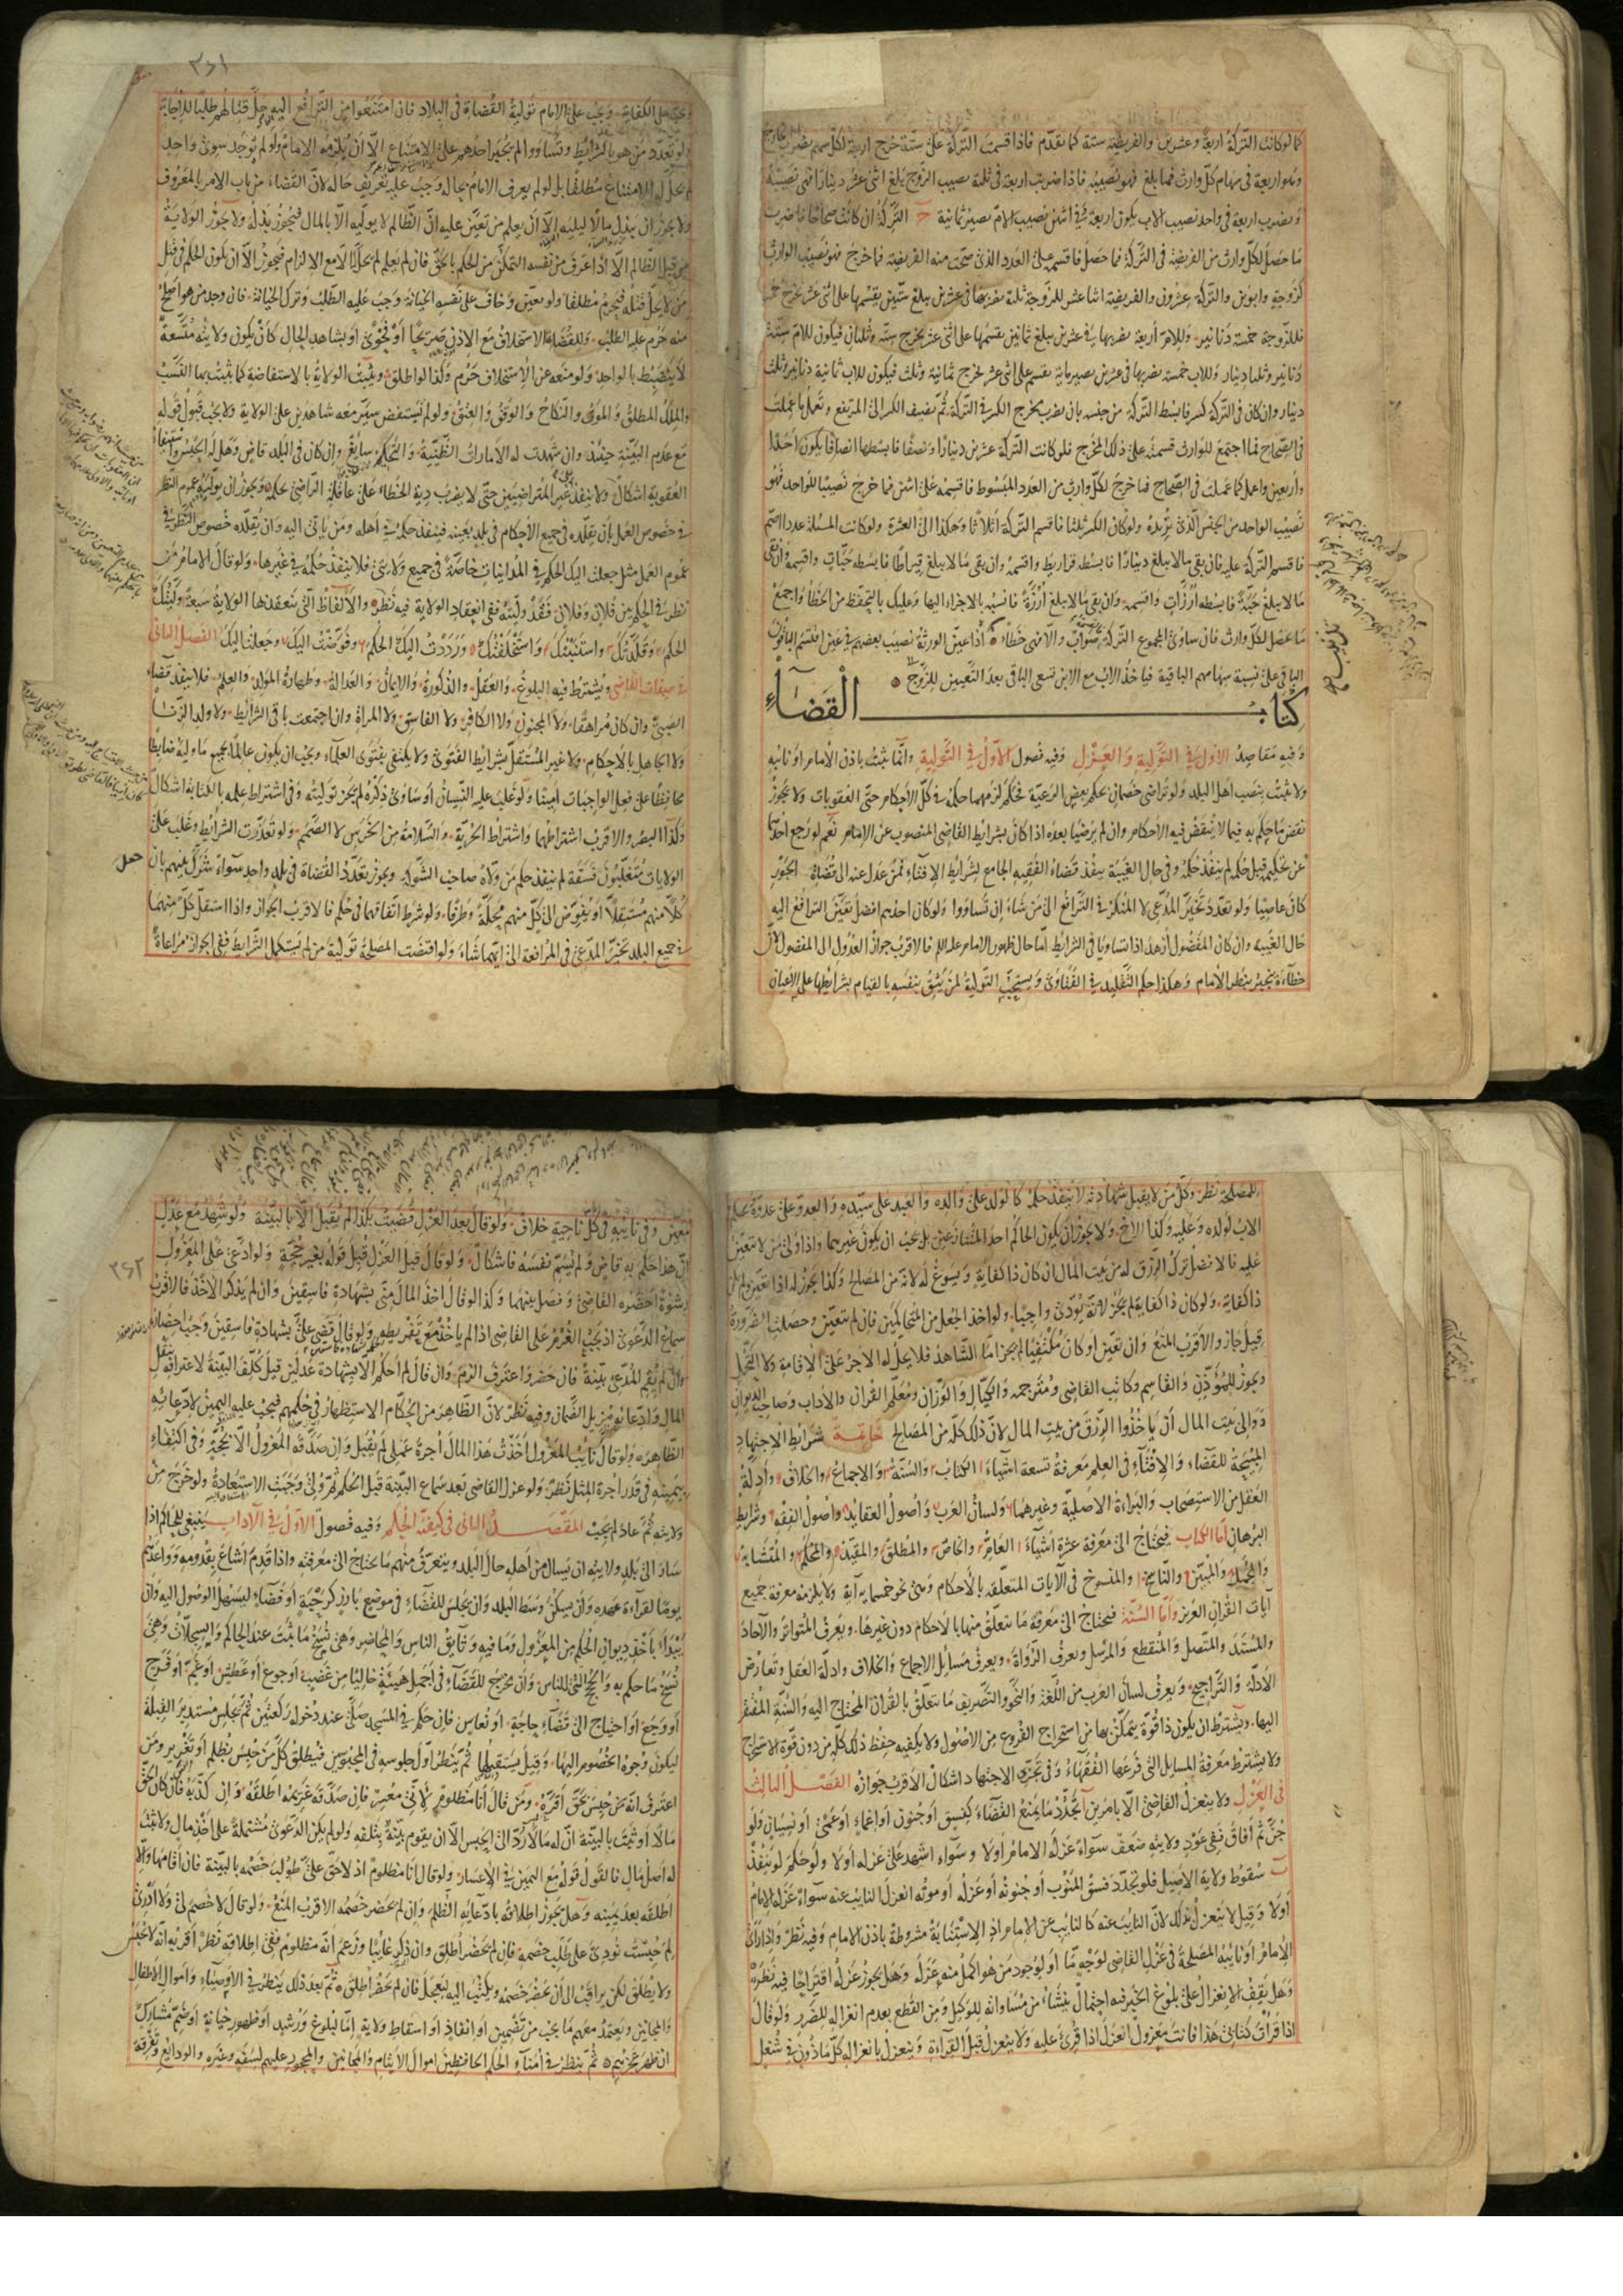 كما لوكانت التركة اربعة وعشرين والفريضة ستة كما تقدم فاذا قسمت التركة على ستة خرج اربعة لكل سهم يضرب الخارج
وهو اربعة في سهام كل وارث فما بلغ فهو نصيبه فاذا ضربت اربعة في ثلثة نصيب الزوج بلغ اثنى عشر دينارا فهى نصيبه
وتضرب اربعة في واحد نصيب الاب يكون اربعة وفي اثنين نصيب الام يصير ثمانية ج التركة ان كانت صحاحا فاضرب
ما حصل لكل وارث من الفريضة في التركة فما حصل فاقسمه على العدد الذي صحت منه الفريضة فما خرج فهو نصيب الوارث
كزوجة وابوين والتركة عشرون والفريضة اثنا عشر للزوجة ثلثة تضربها في عشرين يبلغ ستين يقسمها على اثنى عشر يخرج خمسة
فللزوجة خمسة دنانير وللام اربعة تضربها في عشرين يبلغ ثمانين تقسمها على اثنى عشر يخرج ستة وثلثان فيكون للام ستة
دنانير وثلثا دينار وللاب خمسة تضربها في عشرين يصير ماية يقسم على اثنى عشر يخرج ثمانية وثلث فيكون للاب ثمانية دنانير وثلث
دينار وان كان في التركة كسر فابسط التركة من جنسه بان تضرب مخرج الكسر في التركة ثم تضيف الكسر الى المرتفع وتعمل ما عملت
في الصحاح فما اجتمع للوارث قسمته على ذلك المخرج فلو كانت التركة عشرين دينارا ونصفا فابسطها انصافا يكون احدا
واربعين واعمل كما عملت في الصحاح فما خرج لكل وارث من العدد المبسوط فاقسمه على اثنين فما خرج نصيبا للواحد فهو
نصيب الواحد من الجنس الذي تريده ولو كان الكسر ثلثا فاقسم التركة اثلاثا وهكذا الى العشرة ولو كانت المسئلة عددا اصم
فاقسم التركة عليه فان بقى مالا يبلغ دينارا فابسطه قراريط واقسمه وان بقى ما لا يبلغ قيراطا فابسطه حبات واقسمه وان بقى
مالا يبلغ حبة فابسطه ارزات واقسمه وان بقى مالا يبلغ ارزة فانسبه بالاجزاء اليها وعليك بالتحفظ من الخطاء واجمع
ما حصل لكل وارث فان ساوى المجموع التركة فصواب والا فهى خطاء اذا عين الورثة نصيب بعضهم في عين اقتسم الباقون
الباقى على نسبة سهامهم الباقية فياخذ الاب مع الابن تسعى الباقى بعد التعيين للزوج
كتاب القضاء
وفيه مقاصد الاول في التولية والعزل وفيه فصول الاول في التولية وانما يثبت باذن الامام او نائبه
ولا يثبت بنصب اهل البلد ولو تراضى خصمان بحكم بعض الرعية فحكم لزمهما حكمه في كل الاحكام حتى العقوبات ولا يجوز
نقض ما حكم به فيما لا ينقض فيه الاحكام وان لم يرضيا بعده اذا كان بشرايط القاضى المنصوب عن الامام نعم لو رجع احدهما
عن تحكيمه قبل حكمه لم ينفذ حكمه وفي حال الغيبة ينفذ قضاء الفقيه الجامع لشرايط الافتاء فمن عدل عنه الى قضاة الجور
كان عاصيا ولو تعدد تخير المدعى لا المنكر في الترافع الى من شاء ان تساووا ولو كان احدهم افضل تعين الترافع اليه
حال الغيبة وان كان المفضول ازهد اذا تساويا في الشرايط اما حال ظهور الامام عليه السلم فالاقرب جواز العدول الى المفضول لان
خطاءه ينجبر بنظر الامام وهكذا حكم التقليد في الفتاوى ويستحب التولية لمن يثق بنفسه بالقيام بشرايطها على الاعيان
٣٦١
وتجب على الكفاية وتجب على الامام تولية القضاة في البلاد فان امتنعوا من الترافع اليه حل قتالهم طلبا للاجابة
ولو تعدد من هو بالشرايط وتساووا لم يجبر احدهم على الامتناع الا ان يلزمه الامام ولو لم يوجد سوى واحد
لم يحل له الامتناع مطلقا بل لو لم يعرف الامام بحاله وجب عليه تعريف حاله لان القضاء من باب الامر بالمعروف
ولا يجوز ان يبذل مالا ليليه الا ان يعلم من تعين عليه ان الظالم لا يوليه الا بالمال فيجوز بذله ولا يجوز الولاية
من قبل الظالم الا اذا عرف من نفسه التمكن من الحكم بالحق فان لم يعلم لم يحل الا مع الالزام فيجوز الا ان يكون الحكم في قتل
من لا يحل قتله فيحرم مطلقا ولو تعين وخاف على نفسه الخيانة وجب عليه الطلب وترك الخيانة فان وجد من هو اصلح
منه حرم عليه الطلب وللقضاة الاستخلاف مع الاذن صريحا او فحوى او بشاهد الحال كان يكون ولايته متسعة
لا ينضبط بالواحد ولو منعه عن الاستخلاف حرم وكذا لو اطلق ويثبت الولاية بالاستفاضة كما يثبت بها النسب
والملك المطلق والموت والنكاح والوقف والعتق ولو لم يستفض سير معه شاهدين على الولاية ولا يجب قبول قوله
مع عدم البينة حينئذ وان شهدت له الامارات الظنية والتحكيم سايغ وان كان في البلد قاض وهل له الحبس واستيفاء
العقوبة اشكال ولا ينفذ على غير المتراضيين حتى لا يضرب دية الخطاء على عاقلة الراضى بحكمه ويجوز ان يوليه عموم النظر
في خصوص العمل بان يقلده جميع الاحكام في بلد بعينه فينفذ حكمه في اهله ومن ياتى اليه وان يقلده خصوص النظر في
عموم العمل مثل جعلت اليك الحكم في المداينات خاصة في جميع ولايتى فلا ينفذ حكمه في غيرها ولو قال الامام من
نظر في الحكم بين فلان وفلان فقد وليته ففى انعقاد الولاية فيه نظر والالفاظ التى تنعقد بها الولاية سبعة وليتك
الحكم وقلدتك واستنبتك واستخلفتك ورددت اليك الحكم وفوضت اليك وجعلت اليك الفصل الثانى
في صفات القاضى ويشترط فيه البلوغ والعقل والذكورة والايمان والعدالة وطهارة المولد والعلم فلا ينفذ قضاء
الصبى وان كان مراهقا ولا المجنون ولا الكافر ولا الفاسق ولا المراة وان اجتمعت باقى الشرائط ولا ولد الزنا
ولا الجاهل بالاحكام ولا غير المستقل بشرايط الفتوى ولا يكتفى بفتوى العلماء ويجب ان يكون عالما بجميع ما وليه ضابطا
محافظا على فعل الواجبات امينا ولو غلب عليه النسيان او ساوى ذكره لم يجز توليته وفى اشتراط علمه بالكتابة اشكال
وكذا البصر والاقرب اشتراطهما واشتراط الحرية والسلامة من الخرس لا الصمم ولو تعذرت الشرايط وغلب على
الولايات متغلبون فسقة لم ينفذ حكم من ولاه صاحب الشوكة ويجوز تعدد القضاة في بلد واحد سواء شرك بينهم بان
كلا منهم مستقلا او يفوض الى كل منهم محلة وطرفا ولو شرط اتفاقهما في حكم فالاقرب الجواز واذا استقل كل منهما
في جميع البلد تخير المدعى في المرافعة الى ايهما شاء ولو اقتضت المصلحة تولية من لم يستكمل الشرايط ففى الجواز مراعاة
جعل
للمصلحة نظر وكل من لا يقبل شهادته لا ينفذ حكمه كالولد على والده والعبد على سيده والعدو على عدوه ويحكم
الاب لولده وعليه وكذا الاخ ولا يجوز ان يكون الحاكم احد المتنازعين بل يجب ان يكون غيرهما واذا ولى من لا يتعين
عليه فالافضل ترك الرزق له من بيت المال ان كان ذا كفاية ويسوغ له لانه من المصالح وكذا يجوز له اذا تعين ولم يكن
ذا كفاية ولو كان ذا كفاية لم يجز لانه يؤدى واجبا ولو اخذ الجعل من المتحاكمين فان لم يتعين وحصلت الضرورة
قيل جاز والاقرب المنع وان تعين او كان مكتفيا لم يجز اما الشاهد فلا يحل له الاجر على الاقامة ولا التحمل
ويجوز للمؤذن والقاسم وكاتب القاضى ومترجمه والكيال والوزان ومعلم القران والاداب وصاحب الديوان
ووالى بيت المال ان ياخذوا الرزق من بيت المال لان ذلك كله من المصالح خاتمة شرايط الاجتهاد
المبيحة للقضاء والافتاء في العلم معرفة تسعة اشياء الكتاب والسنة والاجماع والخلاف وادلة
العقل من الاستصحاب والبراءة الاصلية وغيرهما ولسان العرب واصول العقايد واصول الفقه وشرايط
البرهان اما الكتاب فيحتاج الى معرفة عشرة اشياء العام والخاص والمطلق والمقيد والمحكم والمتشابه
والمجمل والمبين والناسخ والمنسوخ في الآيات المتعلقة بالاحكام وهى نحو خمسمائة آية ولا يلزمه معرفة جميع
آيات القران العزيز واما السنة فيحتاج الى معرفة ما يتعلق منها بالاحكام دون غيرها ويعرف المتواتر والآحاد
والمسند والمتصل والمنقطع والمرسل ويعرف الرواة ويعرف مسايل الاجماع والخلاف وادلة العقل وتعارض
الادلة والتراجيح ويعرف لسان العرب من اللغة والنحو والتصريف ما يتعلق بالقران المحتاج اليه والسنة المفتقر
اليها ويشترط ان يكون ذا قوة يتمكن بها من استخراج الفروع من الاصول ولا يكفيه حفظ ذلك كله من دون قوة الاستخراج
ولا يشترط معرفة المسايل التى فرعها الفقهاء وفى تجزى الاجتهاد اشكال الاقرب جوازه الفصل الثالث
في العزل ولا ينعزل القاضى الا بامرين آ تجدد ما يمنع القضاء كفسق او جنون او اغماء او عمى او نسيان ولو
جن ثم افاق ففى عود ولايته ضعف سواء عزله الامام او لا وسواء اشهد على عزله او لا ولو حكم لم ينفذ
ب سقوط ولاية الاصيل فلو تجدد فسق المنوب او جنونه او عزله او موته انعزل النايب عنه سواء عزله الامام
او لا وقيل لا ينعزل بذلك لان النايب عنه كالنايب عن الامام اذ الاستنابة مشروطة باذن الامام وفيه نظر واذا راى
الامام او نايبه المصلحة في عزل القاضى لوجه ما او لوجود من هو اكمل منه عزله وهل يجوز عزله اقتراحا فيه نظر
وهل يقف الانعزال على بلوغ الخبر فيه احتمال ينشاء من مساواته للوكيل ومن القطع بعدم انعزاله للضرر ولو قال
اذا قرات كتابى هذا فانت معزول انعزل اذا قرئ عليه ولا ينعزل قبل القراءة وينعزل بانعزاله كل ماذون في شغل
٣٦٢
معين وفى نايبه في كل ناحية خلاف ولو قال بعد العزل قضيت بكذا لم يقبل الا بالبينة ولو شهد مع عدل
ان هذا حكم به قاض ولم يسم نفسه فاشكال ولو قال قبل العزل قبل قوله بغير حجة ولو ادعى على المعزول
رشوة احضره القاضى وفصل بينهما وكذا لو قال اخذ المال منى بشهادة فاسقين وان لم يذكر الاخذ فالاقرب
سماع الدعوى اذ يجب الغرم على القاضى اذا لم ياخذ مع تفريطه ولو قال قضى على بشهادة فاسقين وجب احضاره
وان لم يقم المدعى بينة فان حضر واعترف الزم وان قال لم احكم الا بشهادة عدلين قيل كلف البينة لاعترافه بنقل
المال وادعائه مزيل الضمان وفيه نظر لان الظاهر من الحكام الاستظهار في حكمهم فيجب عليه اليمين لادعائه
الظاهر ولو قال نائب المعزول اخذت هذا المال اجرة عملى لم يقبل وان صدقه المعزول الا بحجة وفى اكتفاء
بيمينه في قدر اجرة المثل نظر ولو عزل القاضى بعد سماع البينة قبل الحكم ثم ولى وجبت الاستعادة ولو خرج من
ولايته ثم عاد لم يجب المقصد الثانى في كيفية الحكم وفيه فصول الاول في الآداب ينبغى للحاكم اذا
سار الى بلد ولايته ان يسال من اهله حال البلد ويتعرف منهم ما يحتاج الى معرفته واذا قدم اشاع بقدومه وواعدهم
يوما لقراءة عهده وان يسكن وسط البلد وان يجلس للقضاء في موضع بارز كرحبة او فضاء ليسهل الوصول اليه وان
يبدا باخذ ديوان الحكم من المعزول وما فيه وثايق الناس والمحاضر وهى نسخ ما ثبت عند الحاكم والسجلات وهى
نسخ ما حكم به والحجج التى للناس وان يخرج للقضاء في اجمل هيئة خاليا من غضب او جوع او عطش او غم او فرح
او وجع او احتياج الى قضاء حاجة او نعاس فان حكم في المسجد صلى عند دخوله ركعتين ثم يجلس مستدبر القبلة
ليكون وجوه الخصوم اليها وقيل يستقبلها ثم ينظر اول جلوسه في المحبوسين فيطلق كل من حبس بظلم او تعزير ومن
اعترف انه حبس بحق اقره ومن قال انا مظلوم لانى معسر فان صدقه غريمه اطلقه وان كذبه فان كان الحق
مالا او ثبت بالبينة ان له مالا رد الى الحبس الا ان يقوم بينة بتلفه ولو لم يكن الدعوى مشتملة على اخذ مال ولا ثبت
له اصل مال فالقول قوله مع اليمين في الاعسار ولو قال انا مظلوم اذ لا حق على طولب خصمه بالبينة فان اقامها والا
اطلقه بعد يمينه وهل يجوز اطلاقه بادعائه الظلم وان لم يحضر خصمه الاقرب المنع ولو قال لا خصم لى ولا ادرى
لم حبست نودى على طلب خصمه فان لم يحضر اطلق وان ذكر غايبا وزعم انه مظلوم ففى اطلاقه نظر اقربه انه لا يحبس
ولا يطلق لكن يراقب الى ان يحضر خصمه ويكتب اليه ليعجل فان لم يحضر اطلق ثم بعد ذلك ينظر في الاوصياء واموال الاطفال
والمجانين ويعتمد معهم ما يجب من تضمين او انفاذ او اسقاط ولاية اما لبلوغ ورشد او ظهور خيانة او ضم مشارك
ان ظهر عجزهم ثم ينظر في امناء الحكم الحافظين اموال الايتام والمجانين والمحجور عليهم لسفه وغيره والودائع وتفرقة